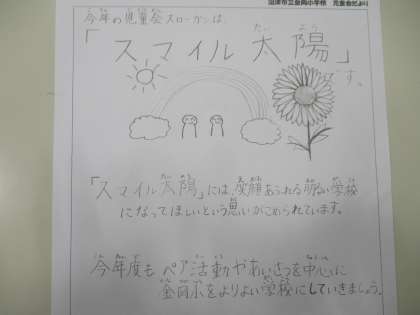 沼津市立金岡小学校 児童会だより
今年の児童会スローガンは、
「スマイル太陽」
です。
「スマイル太陽」には、笑顔あふれる明るい学校
になってほしいという思いがこめられています。
今年度もペア活動やあいさつを中心に
金岡小をよりよい学校にしていきましょう。